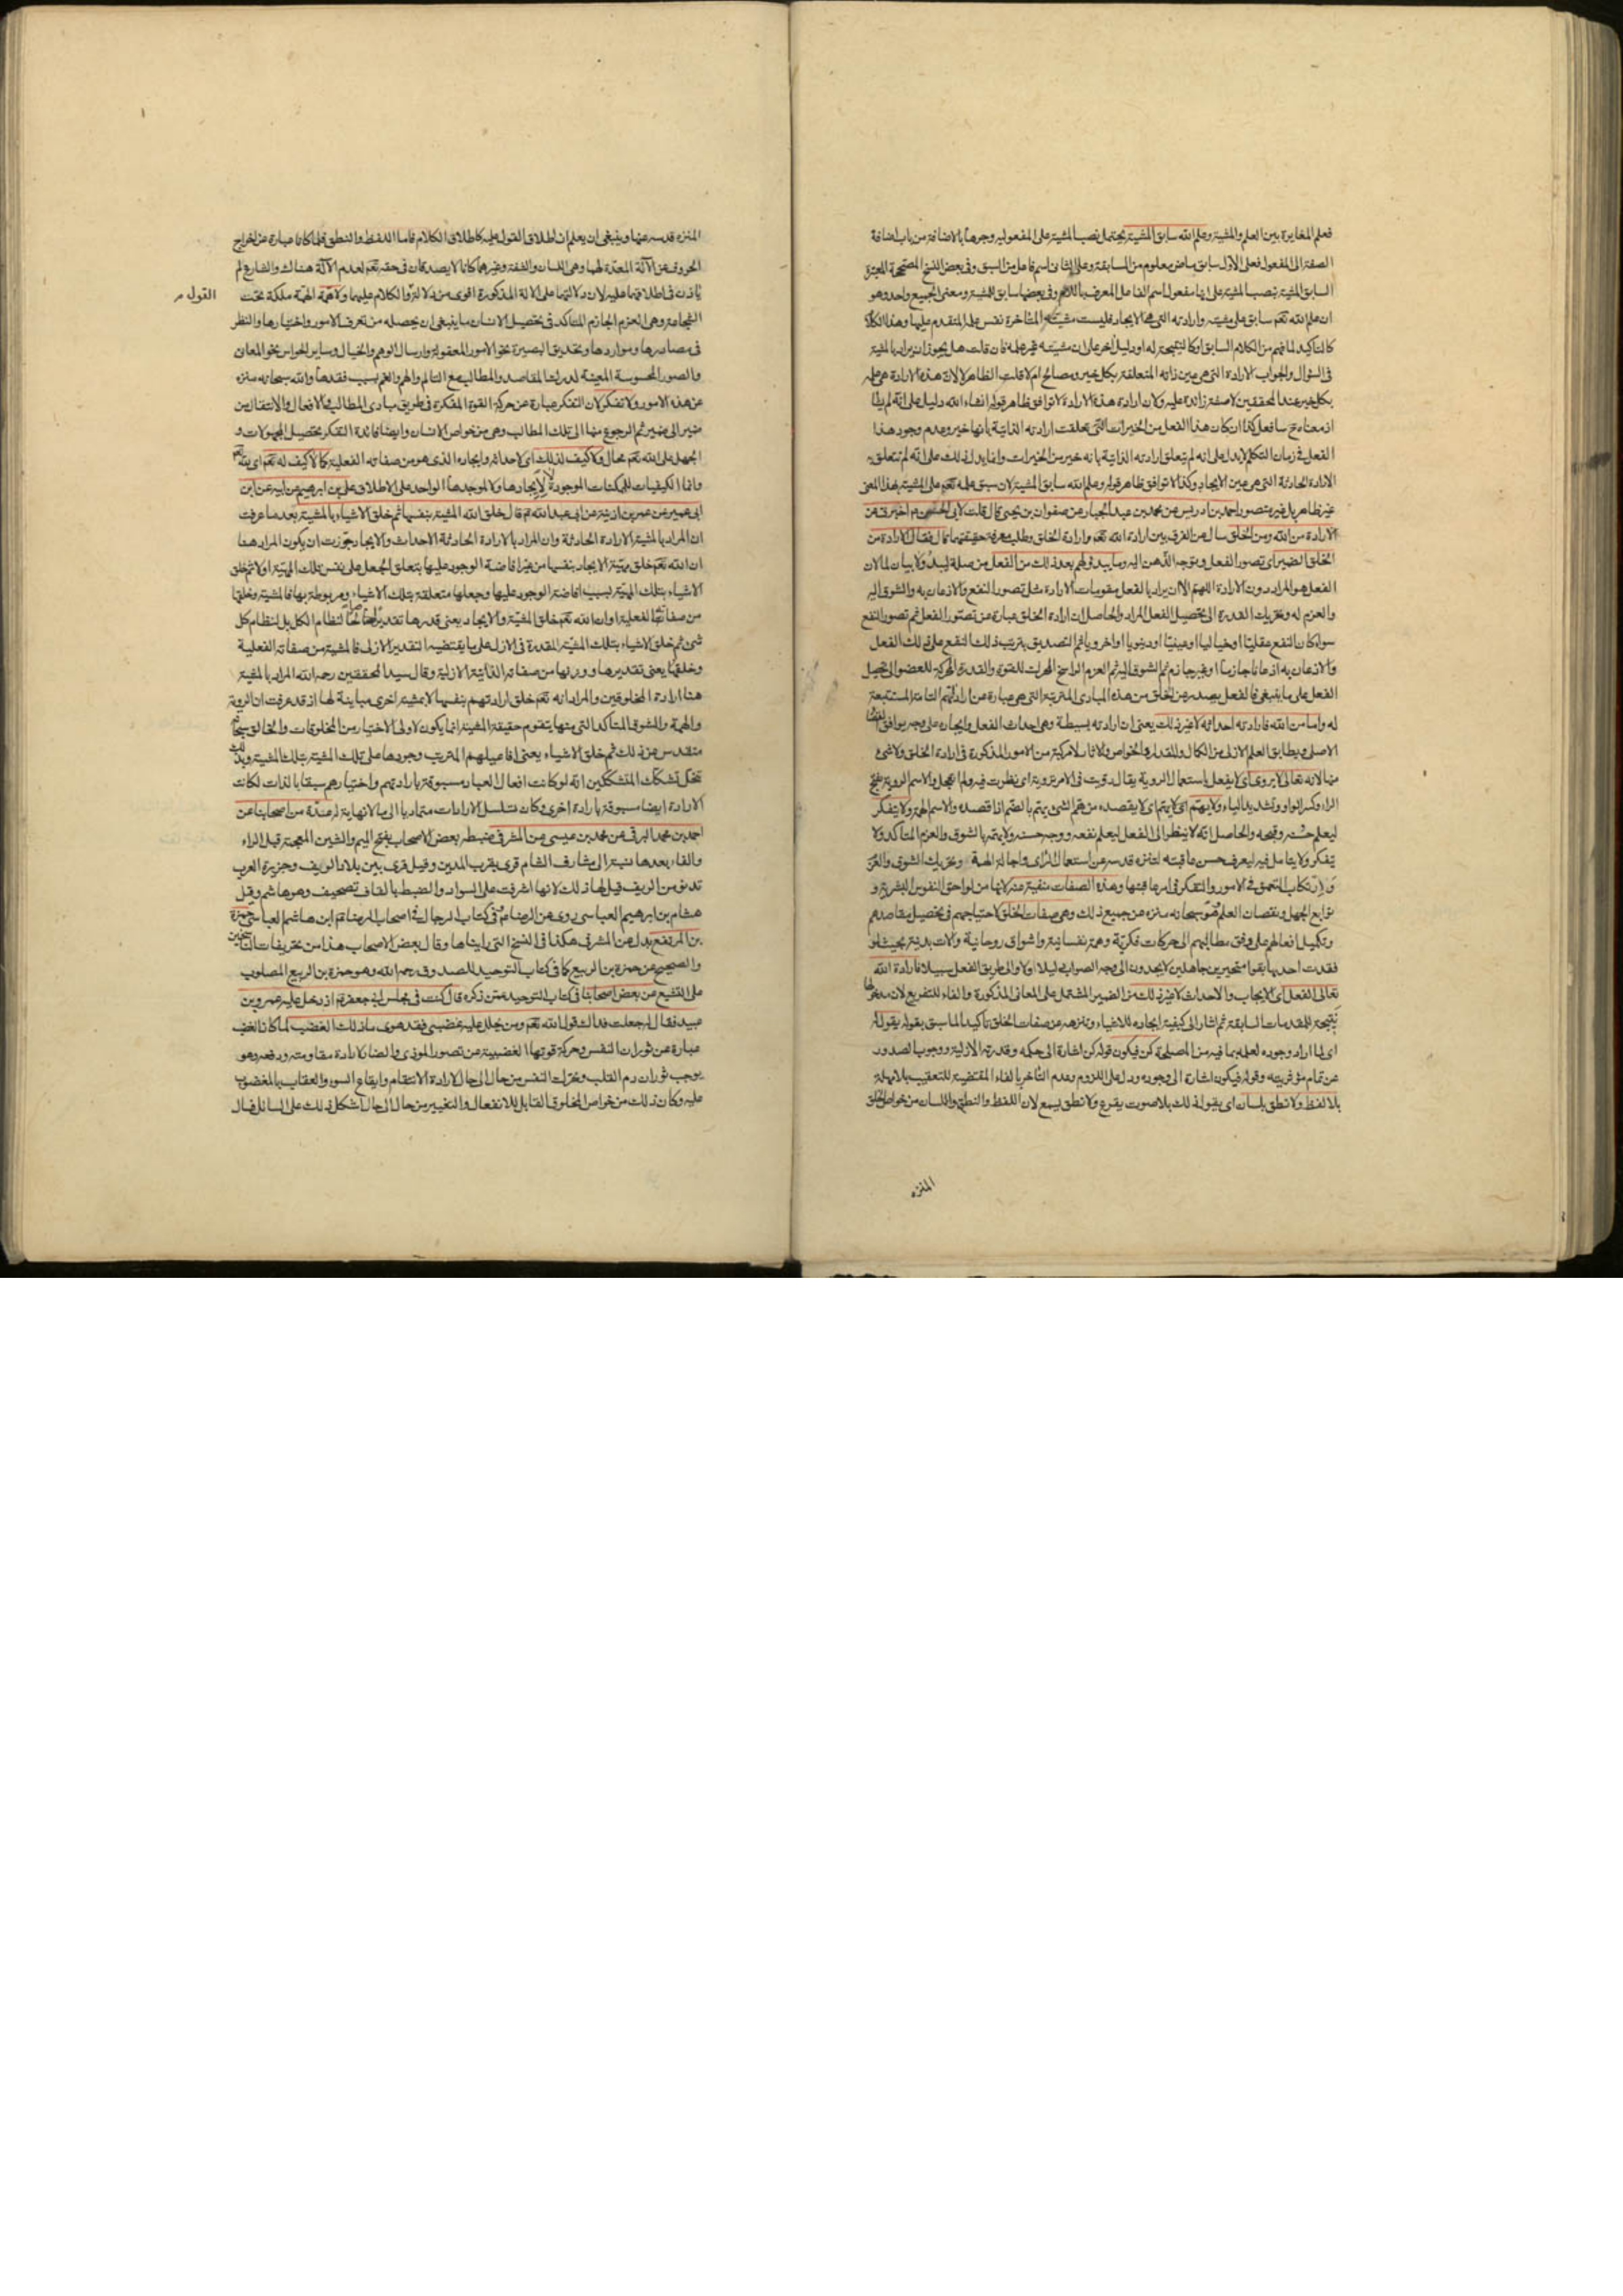 فعلم المغايرة بين العلم والمشية وعلم الله سابق المشية يحتمل نصب المشية على المفعولية وجرها بالاضافة من باب اضافة
الصفة الى المفعول فعلى الاول سابق ماض معلوم من السابقة وعلى الثانى اسم فاعل من السبق وفى بعض النسخ المصححة المعتبرة
السابق المشية بنصب المشية على انها مفعول اسم الفاعل المعرف باللام وفى بعضها سابق للمشية ومعنى الجميع واحد وهو
ان علم الله تعم سابق على مشيته وارادته التى هى الايجاد فليست مشيته المتاخرة نفس علمه المتقدم عليها وهذا الكلام
كالتاكيد لما فهم من الكلام السابق او كالنتيجة له او دليل اخر على ان مشيته غير علمه فان قلت هل يجوز ان يراد بالمشية
فى السؤال والجواب الارادة التى هى عين ذاته المتعلقة بكل خير ومصالح ام لا قلت الظاهر لا لان هذه الارادة هى علمه
بكل خير عند المحققين لا صفة زائدة عليه ولان ارادة هذه الارادة لا توافق ظاهر قوله ان شاء الله دليل على انه لم يشأ
اذ معناه ح سافعل كذا ان كان هذا الفعل من الخيرات التى تعلقت ارادته الذاتية بانها خير وعدم وجود هذا
الفعل فى زمان التكلم لا يدل على انه لم يتعلق ارادته الذاتية بانه خير من الخيرات وانما يدل ذلك على انه لم تتعلق به
الارادة الحادثة التى هى عين الايجاد وكذا لا توافق ظاهر قوله وعلم الله سابق المشية لان سبق علمه تعم على المشية بهذا المعنى
غير ظاهر بل غير متصور احمد بن ادريس عن محمد بن عبد الجبار عن صفوان بن يحيى قال قلت لابى الحسن م اخبرنى عن
الارادة من الله ومن الخلق سال عن الفرق بين ارادة الله تعم وارادة الخلق وطلب معرفة حقيقتهما قال فقال الارادة من
الخلق الضمير اى تصور الفعل وتوجه الذهن اليه وما يبدو لهم بعد ذلك من الفعل من صلة ليبدو لا بيان لما لان
الفعل هو المراد دون الارادة اللهم الا ان يراد بالفعل مقومات الارادة مثل تصور النفع والاذعان به والشوق اليه
والعزم له وتحريك القدرة الى تحصيل الفعل المراد والحاصل ان ارادة الخلق عبارة عن تصور الفعل ثم تصور النفع
سواء كان النفع عقليا او خياليا او عينيا او دنيويا او اخرويا ثم التصديق بترتب ذلك النفع على ذلك الفعل
والاذعان به اذعانا جازما او غير جازم ثم الشوق اليه ثم العزم الراسخ المحرك للقوة والقدرة المحركة للعضو الى تحصيل
الفعل على ما ينبغى فالفعل يصدر عن الخلق من هذه المبادى المترتبة التى هى عبارة عن ارادتهم التامة المستتبعة
له واما من الله فارادته احداثه لا غير ذلك يعنى ان ارادته بسيطة وهى احداث الفعل وايجاده على وجه يوافق القضاء
الاصلى ويطابق العلم الازلى من الكمال والمقدار والخواص والاثار لا مركبة من الامور المذكورة فى ارادة الخلق ولا شئ
منها لانه تعالى لا يروى اى لا يفعل باستعمال الروية يقال رويت فى الامر تروية اى نظرت فيه ولم اعجل والاسم الروية بفتح
الراء وكسر الواو وتشديد الياء ولا يهتم اى لا يهتم اى لا يقصده من هم الشئ يهم بالضم اذا قصده والاسم الهمة ولا يتفكر
ليعلم حسنه وقبحه والحاصل انه لا ينظر الى الفعل ليعلم نفعه ووجه حسنه ولا يهتم بالشوق والعزم المتاكد ولا
يتفكر ولا يتامل فيه ليعرف حسن عاقبته لتنزه قدسه عن استعمال الراى واجالة الهمة وتحريك الشوق والعزم
وارتكاب التعمق فى الامور والتفكر فى امر عاقبتها وهذه الصفات منفية عنه لانها من لواحق النفوس البشرية و
توابع الجهل ونقصان العلم فهو سبحانه منزه عن جميع ذلك وهى صفات الخلق لاحتياجهم فى تحصيل مقاصدهم
وتكميل افعالهم على وفق مطالبهم الى حركات فكرية وهمة نفسانية واشواق روحانية والات بدنية بحيث لو
فقدت احديها بقوا متحيرين جاهلين لا يجدون الى وجه الصواب دليلا ولا الى طريق الفعل سبيلا فارادة الله
تعالى الفعل اى الايجاب والاحداث لا غير ذلك من الضمير المشتمل على المعانى المذكورة والفاء للتفريع لان مدخولها
نتيجة للمقدمات السابقة ثم اشار الى كيفية ايجاده للاشياء وتنزهه عن صفات الخلق تاكيدا لما سبق بقوله يقول له
اى لما اراد وجوده لعلمه بما فيه من المصلحة كن فيكون قوله كن اشارة الى حكمه وقدرته الازلية ووجوب الصدور
عن تمام مؤثريته وقوله فيكون اشارة الى وجوده ودل على اللزوم وعدم التاخر بالفاء المقتضية للتعقيب بلا مهلة
بلا لفظ ولا نطق بلسان اى يقول له ذلك بلا صوت يقرع ولا نطق يسمع لان اللفظ والنطق واللسان من خواص الخلق
المنزه
المنزه قدسه عنها وينبغى ان يعلم ان اطلاق القول عليه كاطلاق الكلام فاما اللفظ والنطق فلما كانا عبارة عن اخراج
الحروف عن الآلة المعدة لها وهى اللسان والشفة وغيرهما كانا لا يصدقان فى حقه تعم لعدم الآلة هناك والشارع لم
ياذن فى اطلاقهما عليه لان دلالتهما على الآلة المذكورة اقوى من دلالة والكلام عليها ولا همة الهمة ملكة تحت
القول م
الشجاعة وهى العزم الجازم المتاكد فى تحصيل الانسان ما ينبغى ان يحصله من تعرف الامور واختيارها والنظر
فى مصادرها ومواردها وتحديق البصيرة نحو الامور المعقولة وارسال الوهم والخيال وساير الحواس نحو المعانى
والصور المحسوسة المعينة لدرك المقاصد والمطالب مع التالم والهم والغم بسبب فقدها والله سبحانه منزه
عن هذه الامور ولا تفكر لان التفكر عبارة عن حركة القوة المفكرة فى طريق مبادى المطالب والافعال والانتقال من
ضمير الى ضمير ثم الرجوع منها الى تلك المطالب وهى من خواص الانسان وايضا فائدة التفكر تحصيل المجهولات و
الجهل على الله تعم محال ولا كيف لذلك اى لاحداثه وايجاده الذى هو من صفاته الفعلية كما لا كيف له تعم اى لذاته
وانما الكيفيات للممكنات الموجودة لا لايجادها ولا لموجدها الواحد على الاطلاق على بن ابرهيم عن ابيه عن ابن
ابى عمير عن عمر بن اذينة عن ابى عبد الله ع قال خلق الله المشية بنفسها ثم خلق الاشياء بالمشية بعد ما عرفت
ان المراد بالمشية الارادة الحادثة وان المراد بالارادة الحادثة الاحداث والايجاد جوزت ان يكون المراد هنا
ان الله تعم خلق مهية الايجاد بنفسها من غير افاضة الوجود عليها بتعلق الجعل على نفس تلك المهية اولا ثم خلق
الاشياء بتلك المهية بسبب افاضة الوجود عليها وجعلها متعلقة بتلك الاشياء ومربوطة بها فالمشية وخلقها
من صفاته الفعلية او ان الله تعم خلق المشية والايجاد يعنى قدرها تقديرا لنظام الكل بل لنظام كل
شئ ثم خلق الاشياء بتلك المشية المقدرة فى الازل على ما يقتضيه التقدير الازلى فالمشية من صفاته الفعلية
وخلقها يعنى تقديرها ووزنها من صفاته الذاتية الازلية وقال سيد المحققين رحمه الله المراد بالمشية
هنا ارادة المخلوقين والمراد انه تعم خلق ارادتهم بنفسها لا بمشية اخرى مباينة لها اذ قد عرفت ان الروية
والهمة والشوق المتاكد التى منها يتقوم حقيقة المشية انما يكون لاولى الاختيار من المخلوقات والخالق سبحانه
متقدس عن ذلك ثم خلق الاشياء يعنى افاعيلهم المترتب وجودها على تلك المشية بتلك المشية وبذلك
تنحل تشكك المتشككين انه لو كانت افعال العباد مسبوقة بارادتهم واختيارهم سبقا بالذات لكانت
الارادة ايضا مسبوقة بارادة اخرى وكان تسلسل الارادات متماديا الى ما لا نهاية له عدة من اصحابنا عن
احمد بن محمد البرقى عن محمد بن عيسى عن المشرقى ضبطه بعض الاصحاب بفتح الميم والشين المعجمة قبل الراء
والفاء بعدها نسبة الى مشارف الشام قرى بقرب المدين وقيل قرى بين بلاد الريف وجزيرة العرب
تدنو من الريف قيل لها ذلك لانها اشرفت على السواد والضبط بالقاف تصحيف وهو هاشم وقيل
هشام بن ابرهيم العباسى روى عن الرضا ع فى كتاب الرجال فى اصحاب الرضا ع ابن هاشم العباسى حمزة
بن المرتفع بدل عن المشرقى هكذا فى النسخ التى رايناها وقال بعض الاصحاب هذا من تحريفات الناسخين
والصحيح عن حمزة بن الربيع كما فى كتاب التوحيد للصدوق رحمه الله وهو حمزة بن الربيع المصلوب
على التشيع عن بعض اصحابنا فى كتاب التوحيد عمن ذكره قال كنت فى مجلس ابى جعفر ع اذ دخل عليه عمرو بن
عبيد فقال له جعلت فداك قول الله تعم ومن يحلل عليه غضبى فقد هوى ما ذلك الغضب لما كان الغضب
عبارة عن ثوران النفس وحركة قوتها الغضبية عن تصور الموذى والضار لارادة مقاومته ودفعه وهو
يوجب ثوران دم القلب وتحرك النفس من حال الى حال لارادة الانتقام وايقاع السوء والعقاب بالمغضوب
عليه وكان ذلك من خواص المخلوق القابل للانفعال والتغيير من حال الى حال اشكل ذلك على السائل فسال